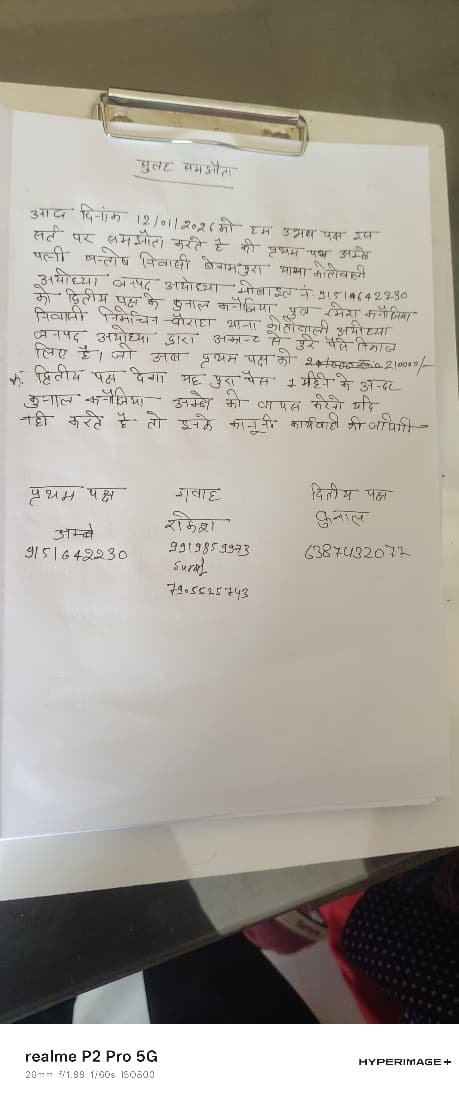 सुलह समझौता
आज दिनांक 12/01/2026 को हम उभय पक्ष इस
सर्त पर समझौता करते है की प्रथम पक्ष अम्बे
पत्नी सन्तोष निवासी बेगमपुरा थाना कोतवाली
अयोध्या जनपद अयोध्या मोबाइल नं. 9151642230
को द्वितीय पक्ष के कुनाल कनौजिया पुत्र रमेश कनौजिया
निवासी चौराहा थाना कोतवाली अयोध्या
जनपद अयोध्या द्वारा से पुरे पैसे निकाल
लिए है। जो अब प्रथम पक्ष को 210000/-
द्वितीय पक्ष देगा यह पुरा पैसा 1 महिने के अन्दर
कुनाल कनौजिया अम्बे को वापस करेगे यदि
नही करते है तो इनके कानूनी कार्यवाही की जायेगी
प्रथम पक्ष गवाह द्वितीय पक्ष
अम्बे राकेश कुनाल
9151642230 9919859973 6387432077
Suraj
7905525743
realme P2 Pro 5G
HYPERIMAGE+
26mm f/1.88 1/60s ISO800